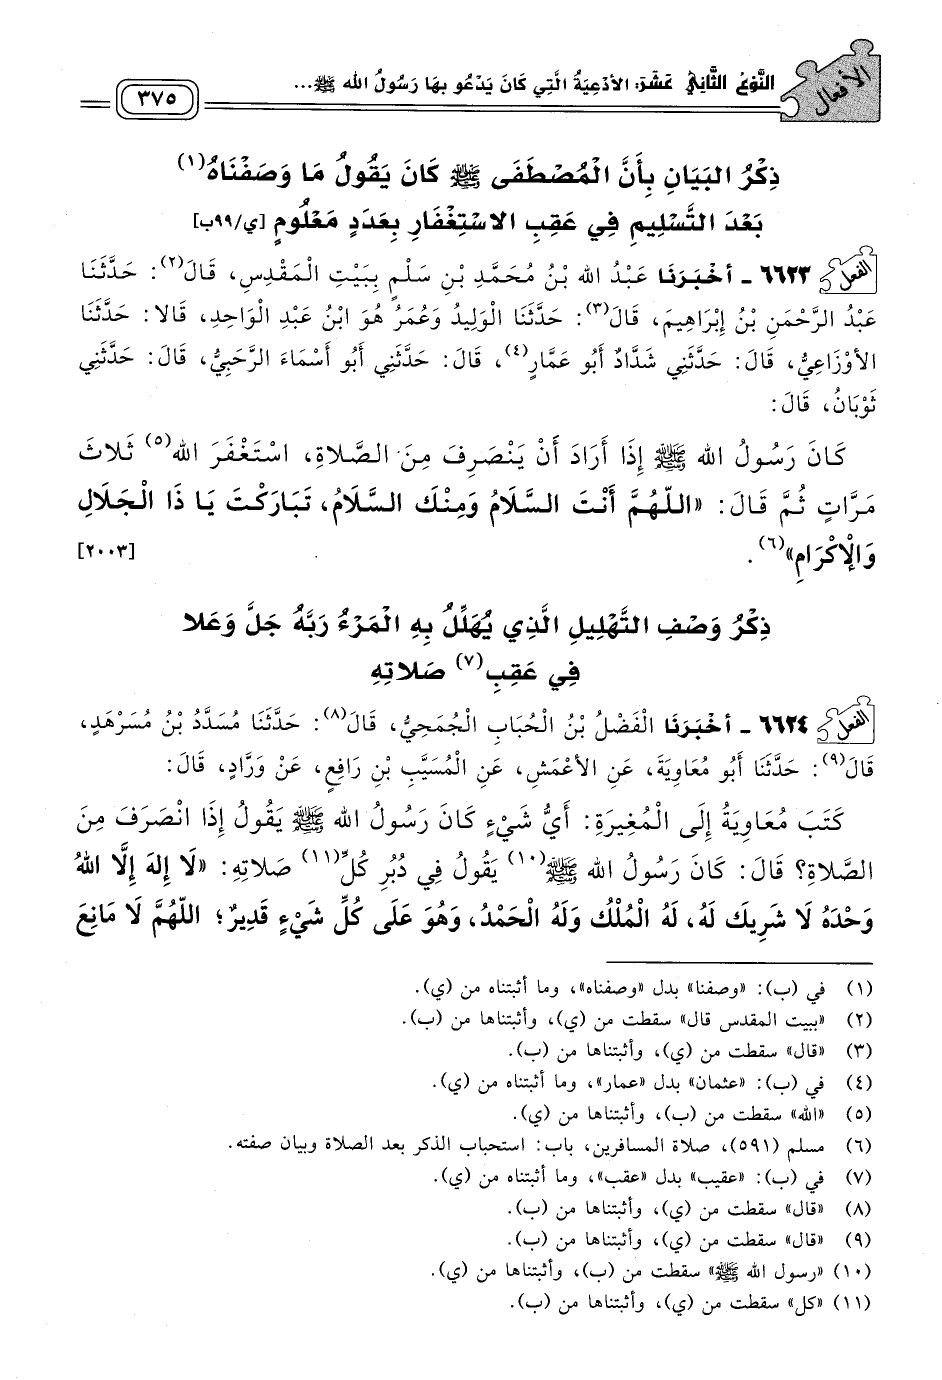 الأفعال
النَّوْعُ الثَّانِي عَشَرَ: الأَدْعِيَةُ الَّتِي كَانَ يَدْعُو بِهَا رَسُولُ الله ﷺ...
٣٧٥
ذِكْرُ البَيَانِ بِأَنَّ الْمُصْطَفَى ﷺ كَانَ يَقُولُ مَا وَصَفْنَاهُ(١)
بَعْدَ التَّسْلِيمِ فِي عَقِبِ الاسْتِغْفَارِ بِعَدَدٍ مَعْلُومٍ [ي/٩٩ب]
الفعل ٦٦٢٣ ـ أَخْبَرَنَا عَبْدُ الله بْنُ مُحَمَّدِ بْنِ سَلْمٍ بِبَيْتِ الْمَقْدِسِ، قَالَ(٢): حَدَّثَنَا
عَبْدُ الرَّحْمَنِ بْنُ إِبْرَاهِيمَ، قَالَ(٣): حَدَّثَنَا الْوَلِيدُ وَعُمَرُ هُوَ ابْنُ عَبْدِ الْوَاحِدِ، قَالا: حَدَّثَنَا
الأَوْزَاعِيُّ، قَالَ: حَدَّثَنِي شَدَّادٌ أَبُو عَمَّارٍ(٤)، قَالَ: حَدَّثَنِي أَبُو أَسْمَاءَ الرَّحَبِيُّ، قَالَ: حَدَّثَنِي
ثَوْبَانُ، قَالَ:
كَانَ رَسُولُ الله ﷺ إِذَا أَرَادَ أَنْ يَنْصَرِفَ مِنَ الصَّلاةِ، اسْتَغْفَرَ الله(٥) ثَلاثَ
مَرَّاتٍ ثُمَّ قَالَ: «اللَّهُمَّ أَنْتَ السَّلَامُ وَمِنْكَ السَّلَامُ، تَبَارَكْتَ يَا ذَا الْجَلَالِ
وَالْإِكْرَامِ»(٦). [٢٠٠٣]
ذِكْرُ وَصْفِ التَّهْلِيلِ الَّذِي يُهَلِّلُ بِهِ الْمَرْءُ رَبَّهُ جَلَّ وَعَلا
فِي عَقِبِ(٧) صَلاتِهِ
الفعل ٦٦٢٤ ـ أَخْبَرَنَا الْفَضْلُ بْنُ الْحُبَابِ الْجُمَحِيُّ، قَالَ(٨): حَدَّثَنَا مُسَدَّدُ بْنُ مُسَرْهَدٍ،
قَالَ(٩): حَدَّثَنَا أَبُو مُعَاوِيَةَ، عَنِ الأَعْمَشِ، عَنِ الْمُسَيَّبِ بْنِ رَافِعٍ، عَنْ وَرَّادٍ، قَالَ:
كَتَبَ مُعَاوِيَةُ إِلَى الْمُغِيرَةِ: أَيُّ شَيْءٍ كَانَ رَسُولُ الله ﷺ يَقُولُ إِذَا انْصَرَفَ مِنَ
الصَّلاةِ؟ قَالَ: كَانَ رَسُولُ الله ﷺ(١٠) يَقُولُ فِي دُبُرِ كُلِّ(١١) صَلاتِهِ: «لَا إِلهَ إِلَّا اللهُ
وَحْدَهُ لَا شَرِيكَ لَهُ، لَهُ الْمُلْكُ وَلَهُ الْحَمْدُ، وَهُوَ عَلَى كُلِّ شَيْءٍ قَدِيرٌ؛ اللَّهُمَّ لَا مَانِعَ
(١) في (ب): «وصفنا» بدل «وصفناه»، وما أثبتناه من (ي).
(٢) «ببيت المقدس قال» سقطت من (ي)، وأثبتناها من (ب).
(٣) «قال» سقطت من (ي)، وأثبتناها من (ب).
(٤) في (ب): «عثمان» بدل «عمار»، وما أثبتناه من (ي).
(٥) «الله» سقطت من (ب)، وأثبتناها من (ي).
(٦) مسلم (٥٩١)، صلاة المسافرين، باب: استحباب الذكر بعد الصلاة وبيان صفته.
(٧) في (ب): «عقيب» بدل «عقب»، وما أثبتناه من (ي).
(٨) «قال» سقطت من (ي)، وأثبتناها من (ب).
(٩) «قال» سقطت من (ي)، وأثبتناها من (ب).
(١٠) «رسول الله ﷺ» سقطت من (ب)، وأثبتناها من (ي).
(١١) «كل» سقطت من (ي)، وأثبتناها من (ب).